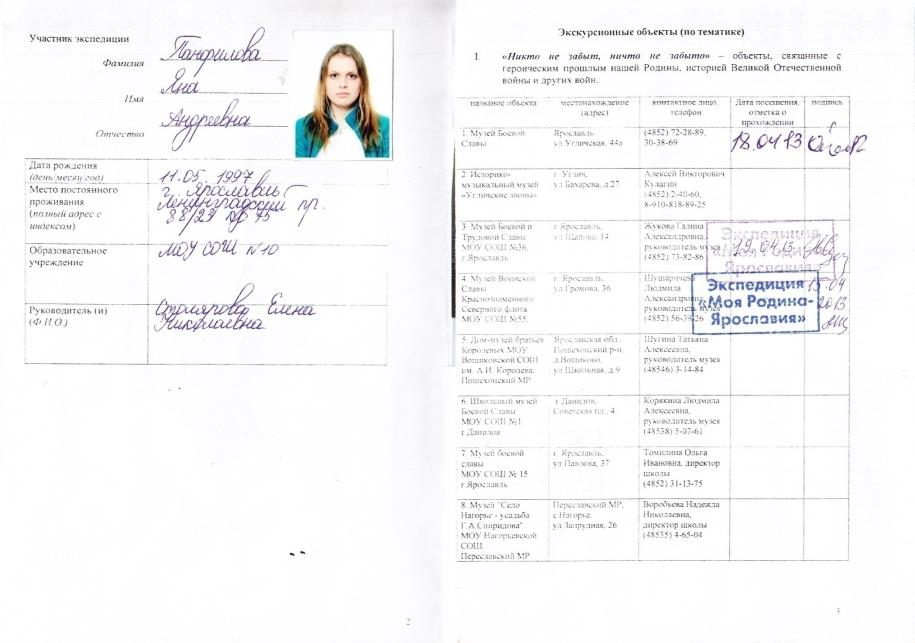 Участник экспедиции
Фамилия Панфилова
Имя Яна
Отчество Андреевна
Дата рождения
(день/месяц/год) 11.05.1997
Место постоянного
проживания
(полный адрес с
индексом)
г. Ярославль
Ленинградский пр.
88/23 кв 75
Образовательное
учреждение
МОУ СОШ №10
Руководитель (и)
(Ф.И.О.)
Столярова Елена
Николаевна
2
Экскурсионные объекты (по тематике)
1. «Никто не забыт, ничто не забыто» – объекты, связанные с
героическим прошлым нашей Родины, историей Великой Отечественной
войны и других войн.
название объекта
местонахождение
(адрес)
контактное лицо,
телефон
Дата посещения,
отметка о
прохождении
подпись
1. Музей Боевой
Славы
Ярославль,
ул.Угличская, 44а
(4852) 72-28-89,
30-38-69
18.04.13
2. Историко-
музыкальный музей
«Угличские звоны»
г. Углич,
ул.Бахарева, д.27
Алексей Викторович
Кулагин
(4852) 2-40-60,
8-910-818-89-25
3. Музей Боевой и
Трудовой Славы
МОУ СОШ №36,
г.Ярославль
г.Ярославль,
ул.Щапова, 14
Жукова Галина
Александровна,
руководитель музея
(4852) 73-82-86
Экспедиция
«Моя Родина-
Ярославия»
19.04.13
4. Музей Воинской
Славы
Краснознаменного
Северного флота
МОУ СОШ №55.
г. Ярославль,
ул.Громова, 36
Людмила
Александровна,
руководитель музея
(4852) 56-39-26
Экспедиция
«Моя Родина-
Ярославия»
2013
5. Дом-музей братьев
Королевых МОУ
Вощиковской СОШ
им. А.И. Королева,
Пошехонский МР
Ярославская обл.,
Пошехонский р-н,
д.Вощиково,
ул.Школьная, д.9
Шугина Татьяна
Алексеевна,
руководитель музея
(48546) 3-14-84
6. Школьный музей
Боевой Славы
МОУ СОШ №1,
г.Данилов
г.Данилов,
Советская пл., 4
Корякина Людмила
Алексеевна,
руководитель музея
(48538) 5-07-61
7. Музей боевой
славы
МОУ СОШ № 15
г.Ярославль
г. Ярославль,
ул.Павлова, 37
Томилина Ольга
Ивановна, директор
школы
(4852) 31-13-75
8. Музей "Село
Нагорье - усадьба
Г.А.Спиридова"
МОУ Нагорьевской
СОШ,
Переславский МР
Переславский МР,
с.Нагорье,
ул.Запрудная, 26
Воробьева Надежда
Николаевна,
директор школы
(48535) 4-65-04
3